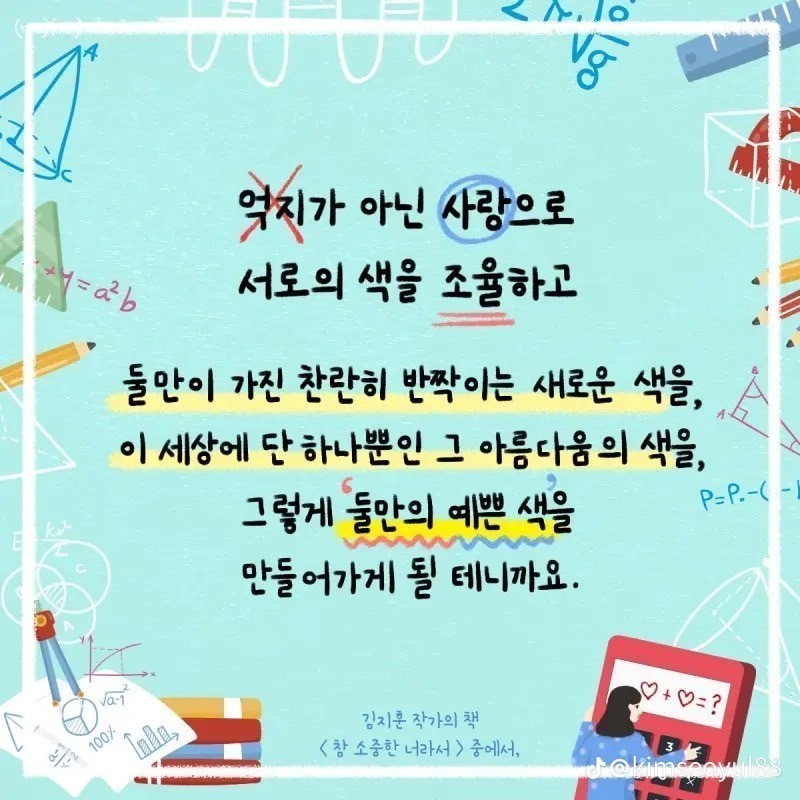 억지가 아닌 사랑으로
서로의 색을 조율하고
둘만이 가진 찬란히 반짝이는 새로운 색을,
이 세상에 단 하나뿐인 그 아름다움의 색을,
그렇게 '둘만의 예쁜 색'을
만들어가게 될 테니까요.
김지훈 작가의 책
< 참 소중한 너라서 > 중에서,
@kimseoyul88
♡+♡=?
3
A
C
+y=a²b
B
A
P=P.-(
C
A
y
x
√a-1
100%